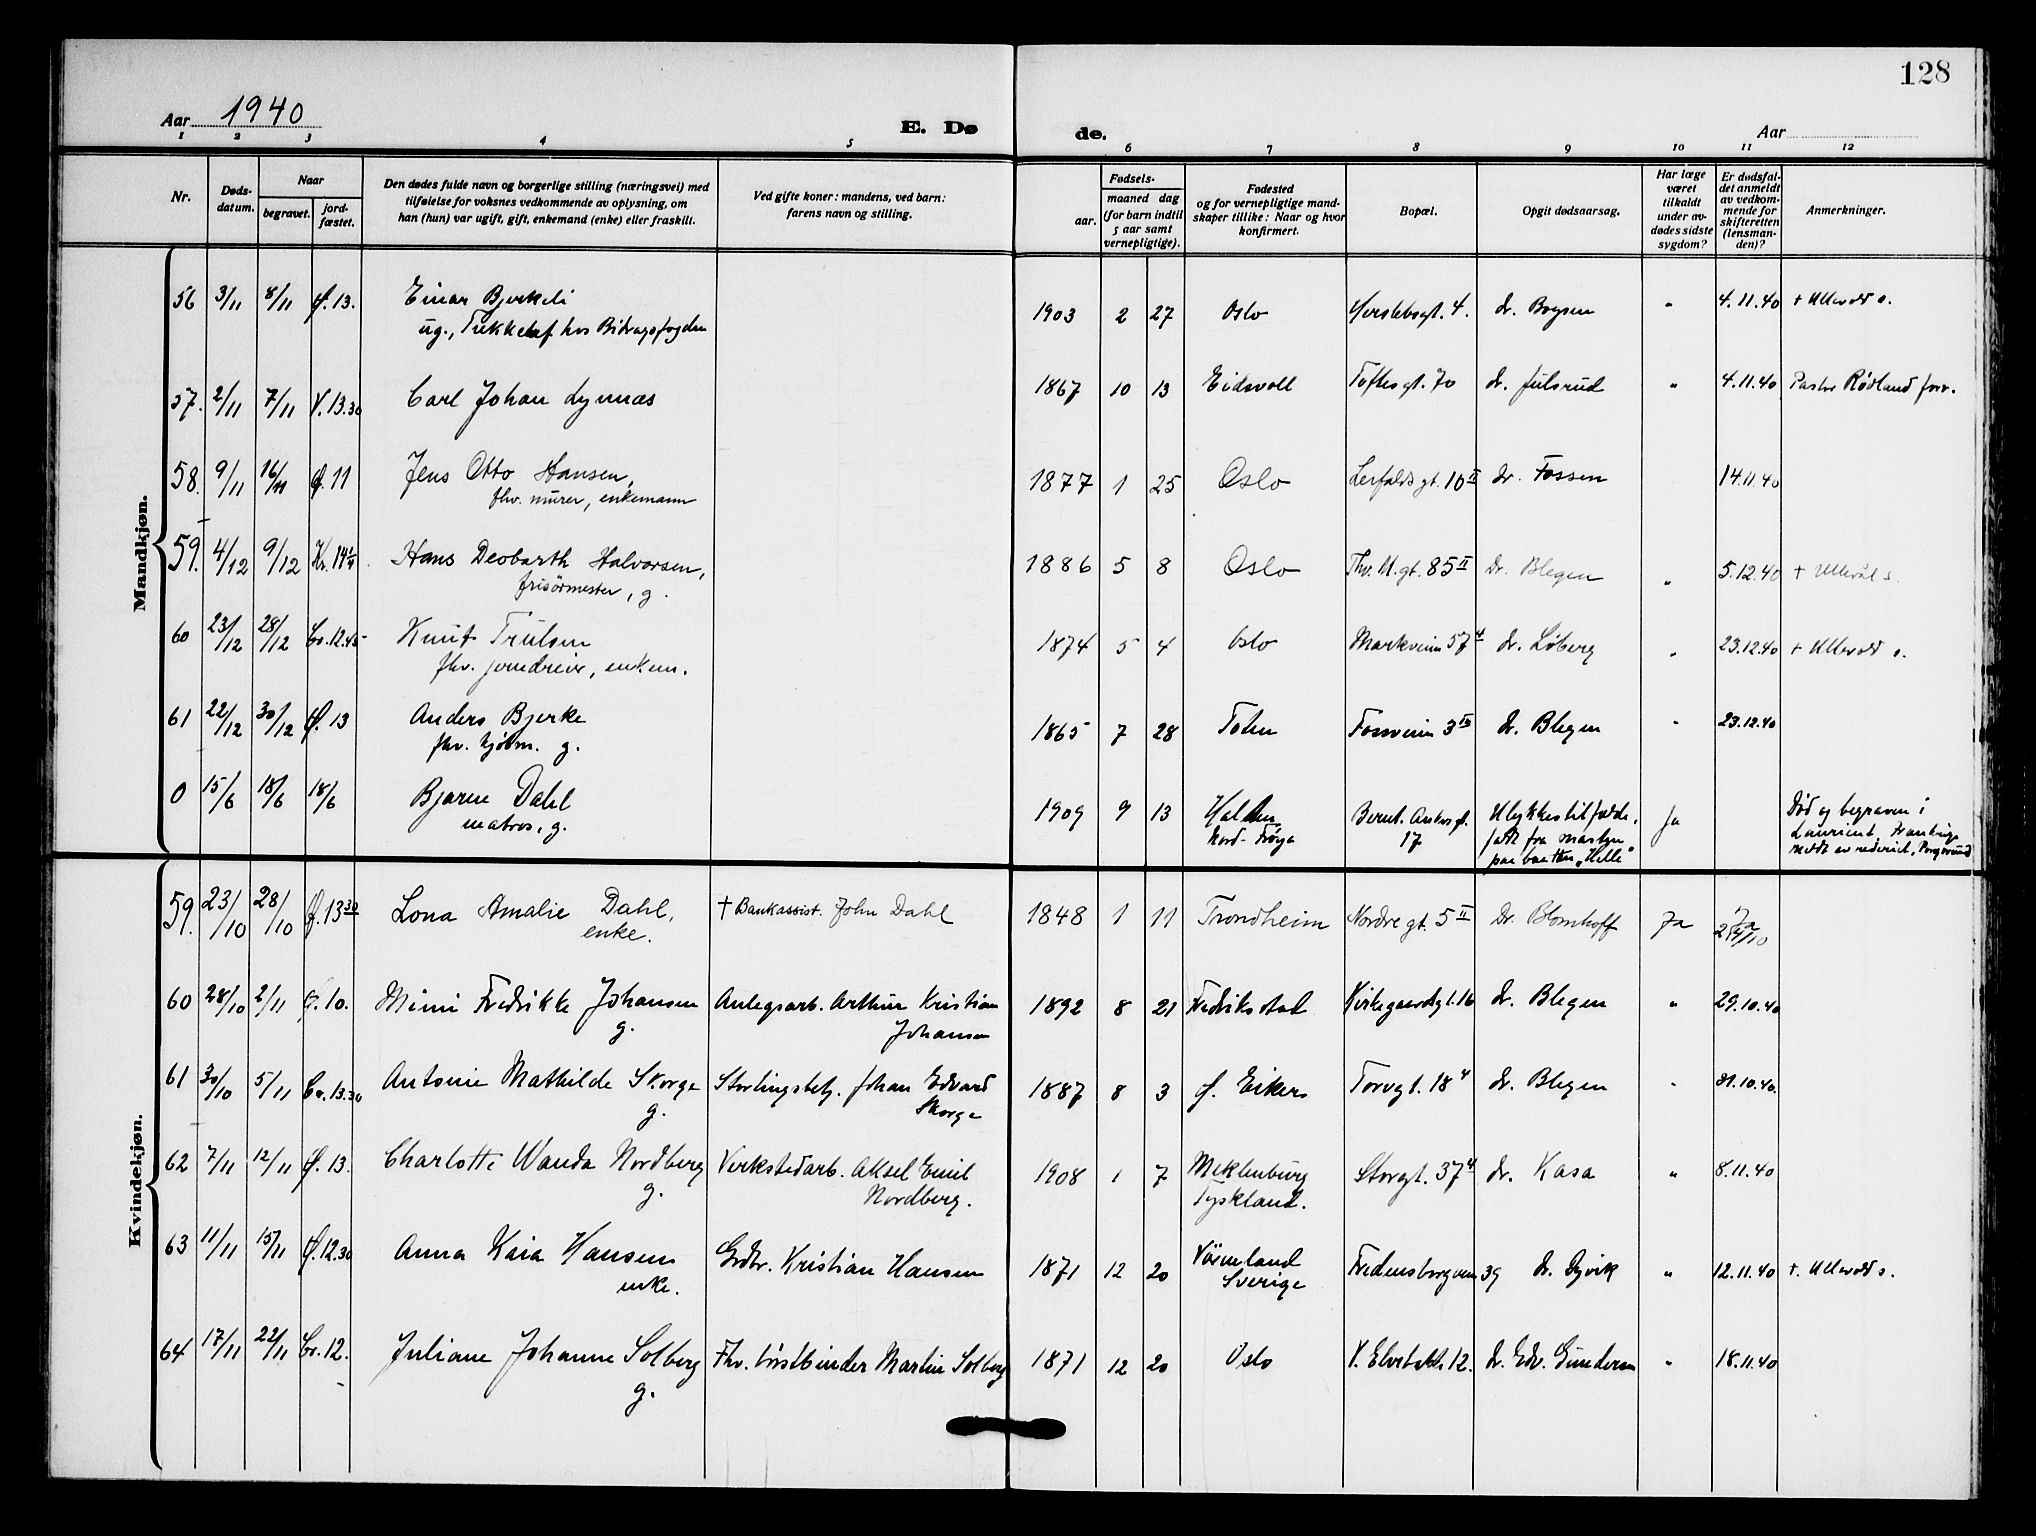 128
Aar 1940
E. Dø
de.
Aar
1 2 3 4 5 6 7 8 9 10 11 12
Nr.
Døds-
datum.
Naar
begravet.
jord-
fæstet.
Den dødes fulde navn og borgerlige stilling (næringsvei) med
tilføielse for voksnes vedkommende av oplysning, om
han (hun) var ugift, gift, enkemand (enke) eller fraskilt.
Ved gifte koner: mandens, ved barn:
farens navn og stilling.
Fødsels-
aar.
maaned dag
(for barn indtil
5 aar samt
vernepligtige).
Fødested
og for vernepligtige mand-
skaper tillike: Naar og hvor
konfirmert.
Bopæl.
Opgit dødsaarsag.
Har læge
været
tilkaldt
under av-
dødes sidste
sygdom?
Er dødsfal-
det anmeldt
av vedkom-
mende for
skifteretten
(lensman-
den)?
Anmerkninger.
Mandkjøn.
56 3/11 8/11 Ø. 13. Einar Bjerkeli 1903 2 27 Oslo Herslebsgt. 4. dr. Boysen " 4.11.40 + Ullevål s.
ug., hos Bidragsfogden
57. 2/11 7/11 V. 13.30 Carl Johan Lynnæs 1867 10 13 Eidsvoll Toftesgt. 70 dr. Julsrud " 4.11.40 Pastor Rødland forr.
58. 9/11 16/11 Ø. 11 Jens Otto Hansen, 1877 1 25 Oslo Leirfaldsgt. 10 II dr. Fossen 14.11.40
fhv. murer, enkemann
59. 4/12 9/12 Kr. 14 Hans Deobarth Halvorsen, 1886 5 8 Oslo Thv. M. gt. 85 II Dr. Blegen " 5.12.40 + Ullevål s.
frisørmester, g.
60 23/12 28/12 Cr. 12.45 Knut Trulsen 1874 5 4 Oslo Markveien 57 4 dr. Løberg " 23.12.40 + Ullevål s.
fhv. jerndreier, enkem.
61 22/12 30/12 Ø. 13 Anders Bjerke 1865 7 28 Toten Fossveien 3 dr. Blegen " 23.12.40
fhv. g.
0 15/6 18/6 18/6 Bjarne Dahl 1909 9 13 Halten Bernt Ankers gt. Ulykkestilfælde, Ja Død og begraven i
matros, g. Nord-Frøya 17 falt fra masten Laurient, Frankrige
paa baaten "Helle" meldt av rederiet, Porsgrund
Kvindekjøn.
59. 23/10 28/10 Ø. 13 30 Lona Amalie Dahl, + Bankassist. John Dahl 1848 1 11 Trondheim Nordre gt. 5 II Dr. Blomhoff Ja Ja
enke. 24/10
60 28/10 2/11 Ø. 10. Mimi Fredrikke Johansen Anlegsarb. Arthur Kristian 1892 8 21 Fredrikstad Kirkegaardsgt. 16 dr. Blegen " 29.10.40
g. Johansen
61 30/10 5/11 Cr. 13.30 Antonie Mathilde Skorge Stortingsbetj. Johan Edvard 1887 8 3 Ø. Eiker Torvgt. 18 4 dr. Blegen " 31.10.40.
g. Skorge
62 7/11 12/11 Ø. 13. Charlotte Wanda Nordberg Verkstedarb. Aksel Emil 1908 1 7 Meklenburg Storgt. 37 4 dr. Kasa " 8.11.40
g. Nordberg. Tyskland.
63 11/11 15/11 Ø. 12.30 Anna Kaia Hansen Grdbr. Kristian Hansen 1871 12 20 Värmland Fredensborgveien 39 dr. Dyvik " 12.11.40 +. Ullevål s.
enke. Sverige
64 17/11 22/11 Cr. 12. Juliane Johanne Solberg Fhv. børstbinder Martin Solberg 1871 12 20 Oslo V. Elvebakk. 12. dr. Edv. Gundersen " 18.11.40
g.